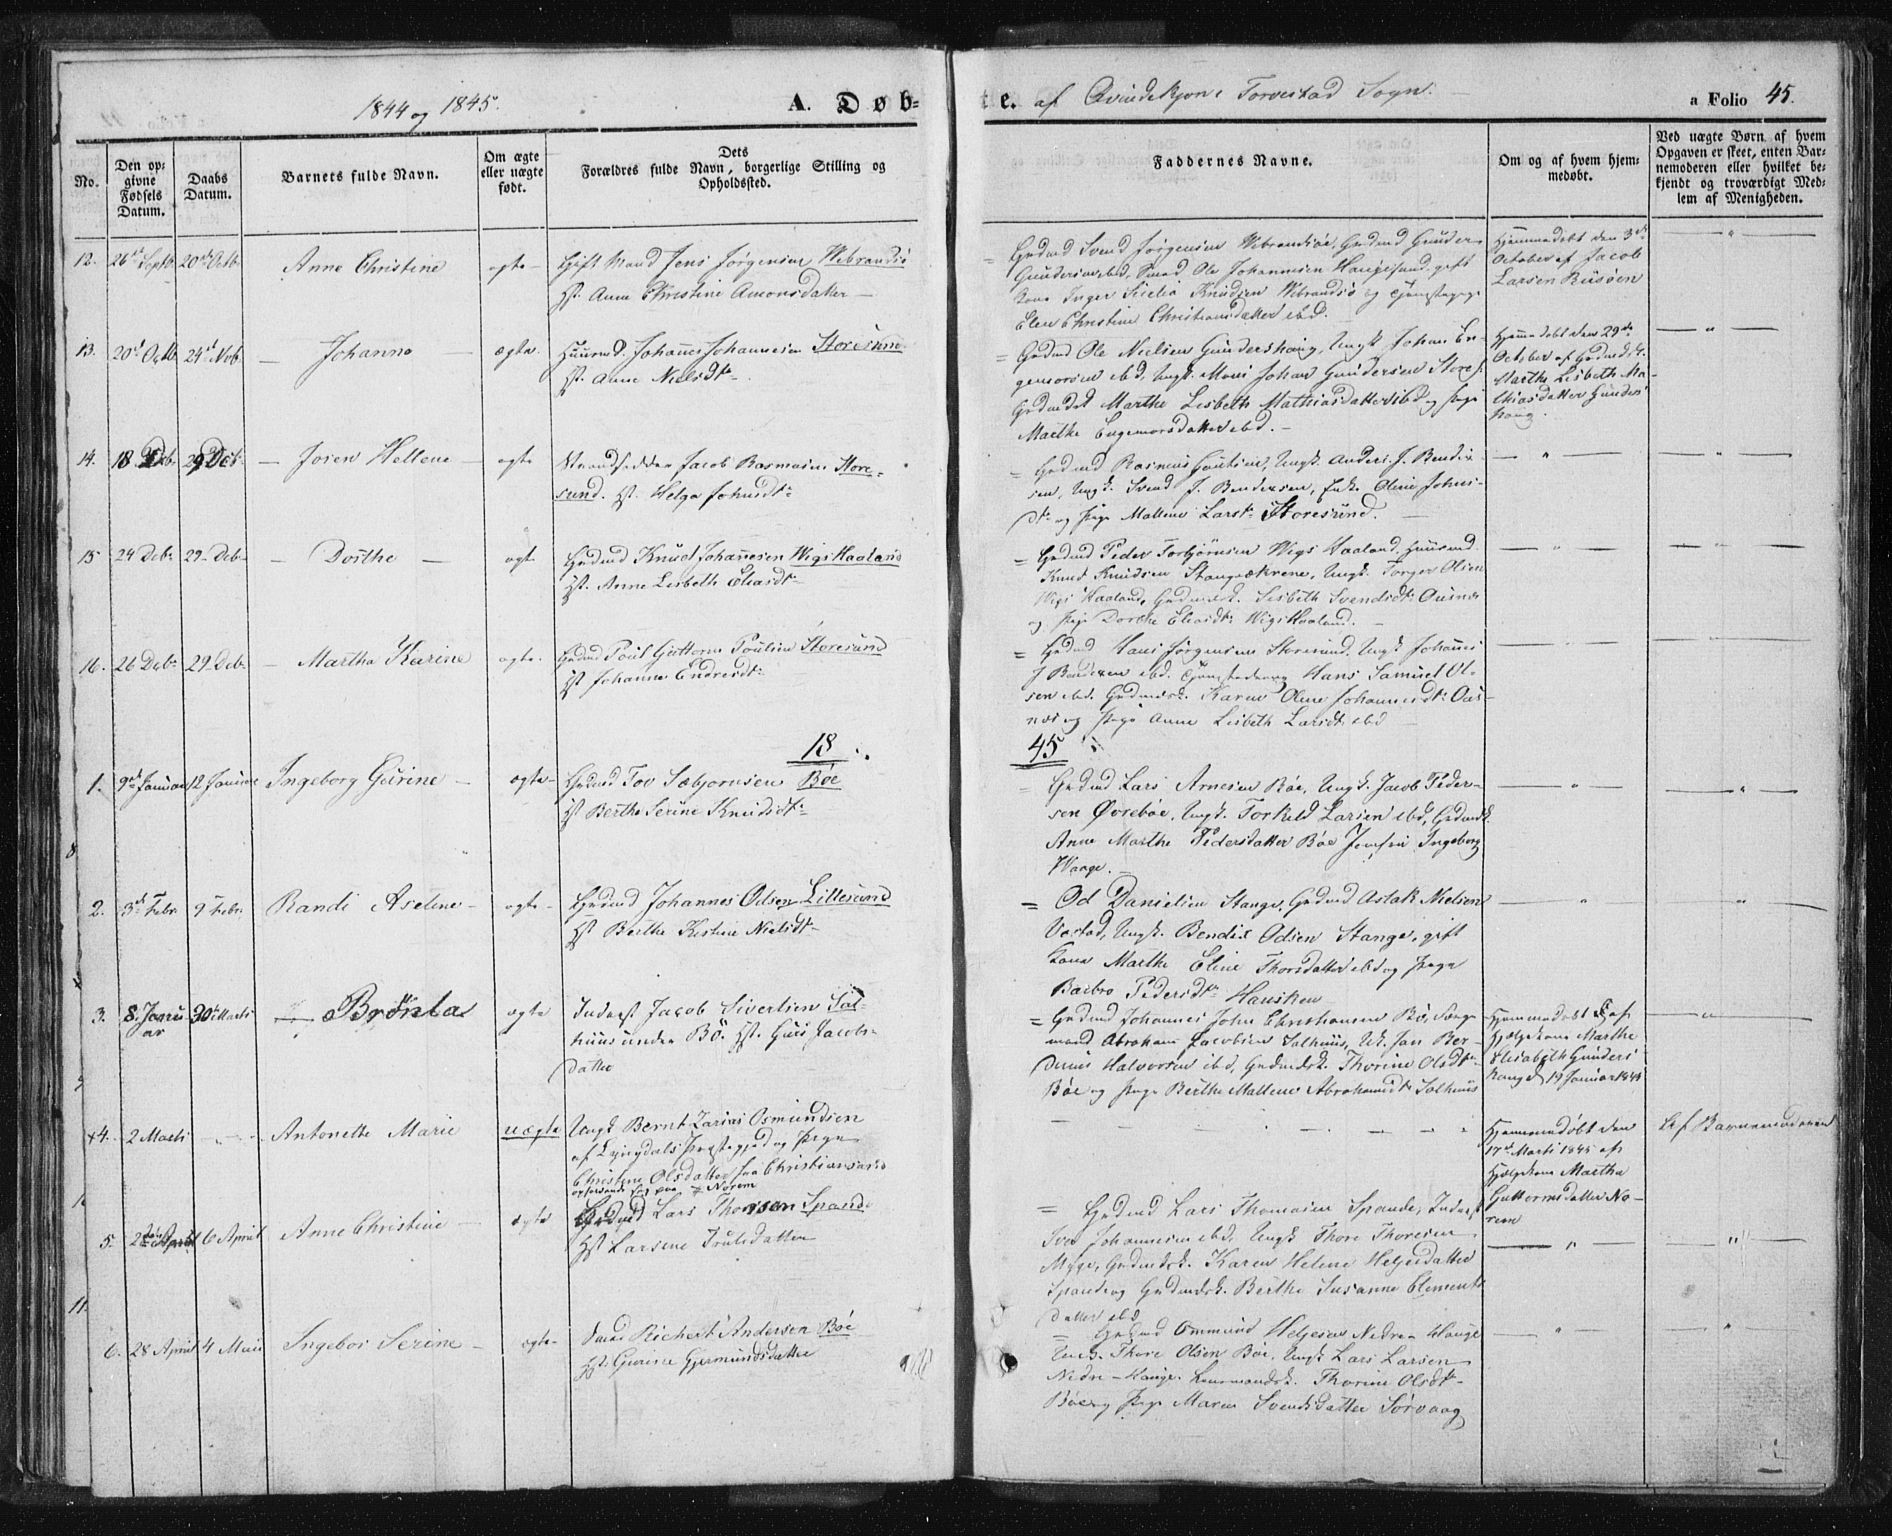 1844 og 1845.
A. Døbte. af Qvindekjøn i Torvestad Sogn.
a Folio 45.
No.
Den opgivne Fødsels Datum.
Daabs Datum.
Barnets fulde Navn.
Om ægte eller uægte født.
Dets Forældres fulde Navn, borgerlige Stilling og Opholdssted.
Faddernes Navne.
Om og af hvem hjemmedøbt.
Ved uægte Børn af hvem Opgaven er skeet, enten Barnemoderen eller hvilket bekjendt og troværdigt Medlem af Menigheden.
12. 26de Septb. 20de Octb. Anne Christine ægte Gift Mand Jens Jørgensen Wibrandsø
H. Anne Christine Amonsdatter
Grdmd Svend Jørgensen Wibrandsøe, Grdmd Gunder
Gundersen ibd, Smed Ole Johannesen Haugesund, gift
Kone Inger Knudsen Wibrandsø og Tjenestepige
Elen Christine Christiansdatter ibd.
Hjemmedøbt den 3de
October af Jacob
Larsen Risøen
13. 20de Octb 24de Novb. Johanne ægte Huusmd. Johannes Johannesen Storesund
H. Anne Nielsdtr
Grdmd Ole Nielsen Gundershaug, Ungk. Johan En-
gemorsen ibd, Ungk. Johan Gundersen Stores.
Grdmdsk Marthe Lisbeth Mathiasdatter ibd og Pige
Marthe Engemorsdatter ibd.
Hjemmedøbt den 29de
October af Grdmdsk.
Marthe Lisbeth Ma-
thiasdatter Gunders
haug.
14. 18 Deb. 29 Deb. Josen Hellene ægte Strandsidder Jacob Rasmusen Store-
sund. H. Helga Johnsdtr
Grdmd Rasmus Gautsen, Ungk. Anders J. Bendix-
sen, Ungk. Svend J. Bendixsen, Enk. Oline Johns-
dtr og Pige Mallene Larsdtr Storesund.
15 24 Deb. 29 Deb. Dorthe ægte Grdmd Knud Johannesen WigsHaaland
H. Anne Lisbeth Eliasdtr
Grdmd Peder Torbjørnsen Wigs Haaland, Huusmd
Knud Knudsen Stangeækrene, Ungk. Torger Olsen
Wigs Haaland, Grdmdsk. Lisbeth Svendsdtr Ausnæs
og Pige Dorthe Eliasdtr WigsHaaland.
16. 26 Deb. 29 Deb. Martha Karine ægte Grdmd Poul Guttorm Poulsen Storesund
H. Johanne Endresdtr
Grdmd Hans Jørgensen Storesund, Ungk. Johannes
J Bendixen ibd. Tjenestedreng Hans Samuel Ol-
sen ibd. Grdmdsk. Karen Oline Johannesdtr Aus-
næs og Pige Anne Lisbeth Larsdtr ibd
18 45
1. 9de Januar 12 Januar Ingeborg Gurine ægte Grdmd Tov Sæbjørnsen Bøe
H. Berthe Serine Knudsdtr
Grdmd Lars Arnesen Bøe, Ungk. Jacob Peder-
sen Øvrebøe, Ungk. Torkeld Larsen ibd, Grdmdsk.
Anne Marthe Pedersdatter Bøe Jomfru Ingeborg
Waage.
2. 3de Febr. 9 Febr. Randi Aseline ægte Grdmd Johannes Odsen Lillesund
H. Berthe Kistine Nielsdtr
Od Danielsen Stange, Grdmd Aslak Nielsen
Vastad, Ungk. Bendix Odsen Stange, gift
Kone Marthe Eline Thorsdatter ibd og Pige
Barbro Pedersdtr Hausken
3. 8. Janu-
ar 30 Marts Brønla ægte Inderst Jacob Sivertsen Sal-
huus under Bø. H. Guri Jacobs-
datter
Grdmd Johannes John Christiansen Bø,
mand Abraham Jacobsen Salhuus, Uk. Jan Ber-
dinus Halvorsen ibd, Grdmdsk. Thorine Olsdtr
Bøe og Pige Berthe Mallene Abrahamsdtr Salhuus
Hjemmedøbt af
Hjelpekone Marthe
Elisabeth Gunders
hauge d. 19 Januar 1845
4. 2 Marts Antonette Marie uægte Ungk Bernt Zarias Osmundsen
af Lyngdals Præstegjæld og Pige
Christine Olsdatter fra Christiansand
opholdende sig paa Norem
Hjemmedøbt den
17de Marts 1845 af
Hjelpekone Martha
Guttormsdatter No-
rem
Af Barnemoderen
5. 2den April 6 April Anne Christine ægte Grdmd Lars Thomsen Spande
H. Larsene Trulsdatter
Grdmd Lars Thomasen Spande, Inderst
Iver Johannesen ibd, Ungk Thore Thoresen
Myge, Grdmdsk. Karen Helene Helgesdatter
Spande og Grdmdsk. Berthe Susanne Clements
datter ibd
6. 28 April 4 Mai Ingebor Serine ægte Smed Richert Andersen Bøe
H. Gurine Gjermundsdatter
Grdmd Ommund Helgesen Nedre-Hauge
Ungk. Thore Olsen Bøe, Ungk Lars Larsen
Nedre-Hauge. Thorine Olsdtr
Bøe og Pige Maren Svendsdatter Sørvaag